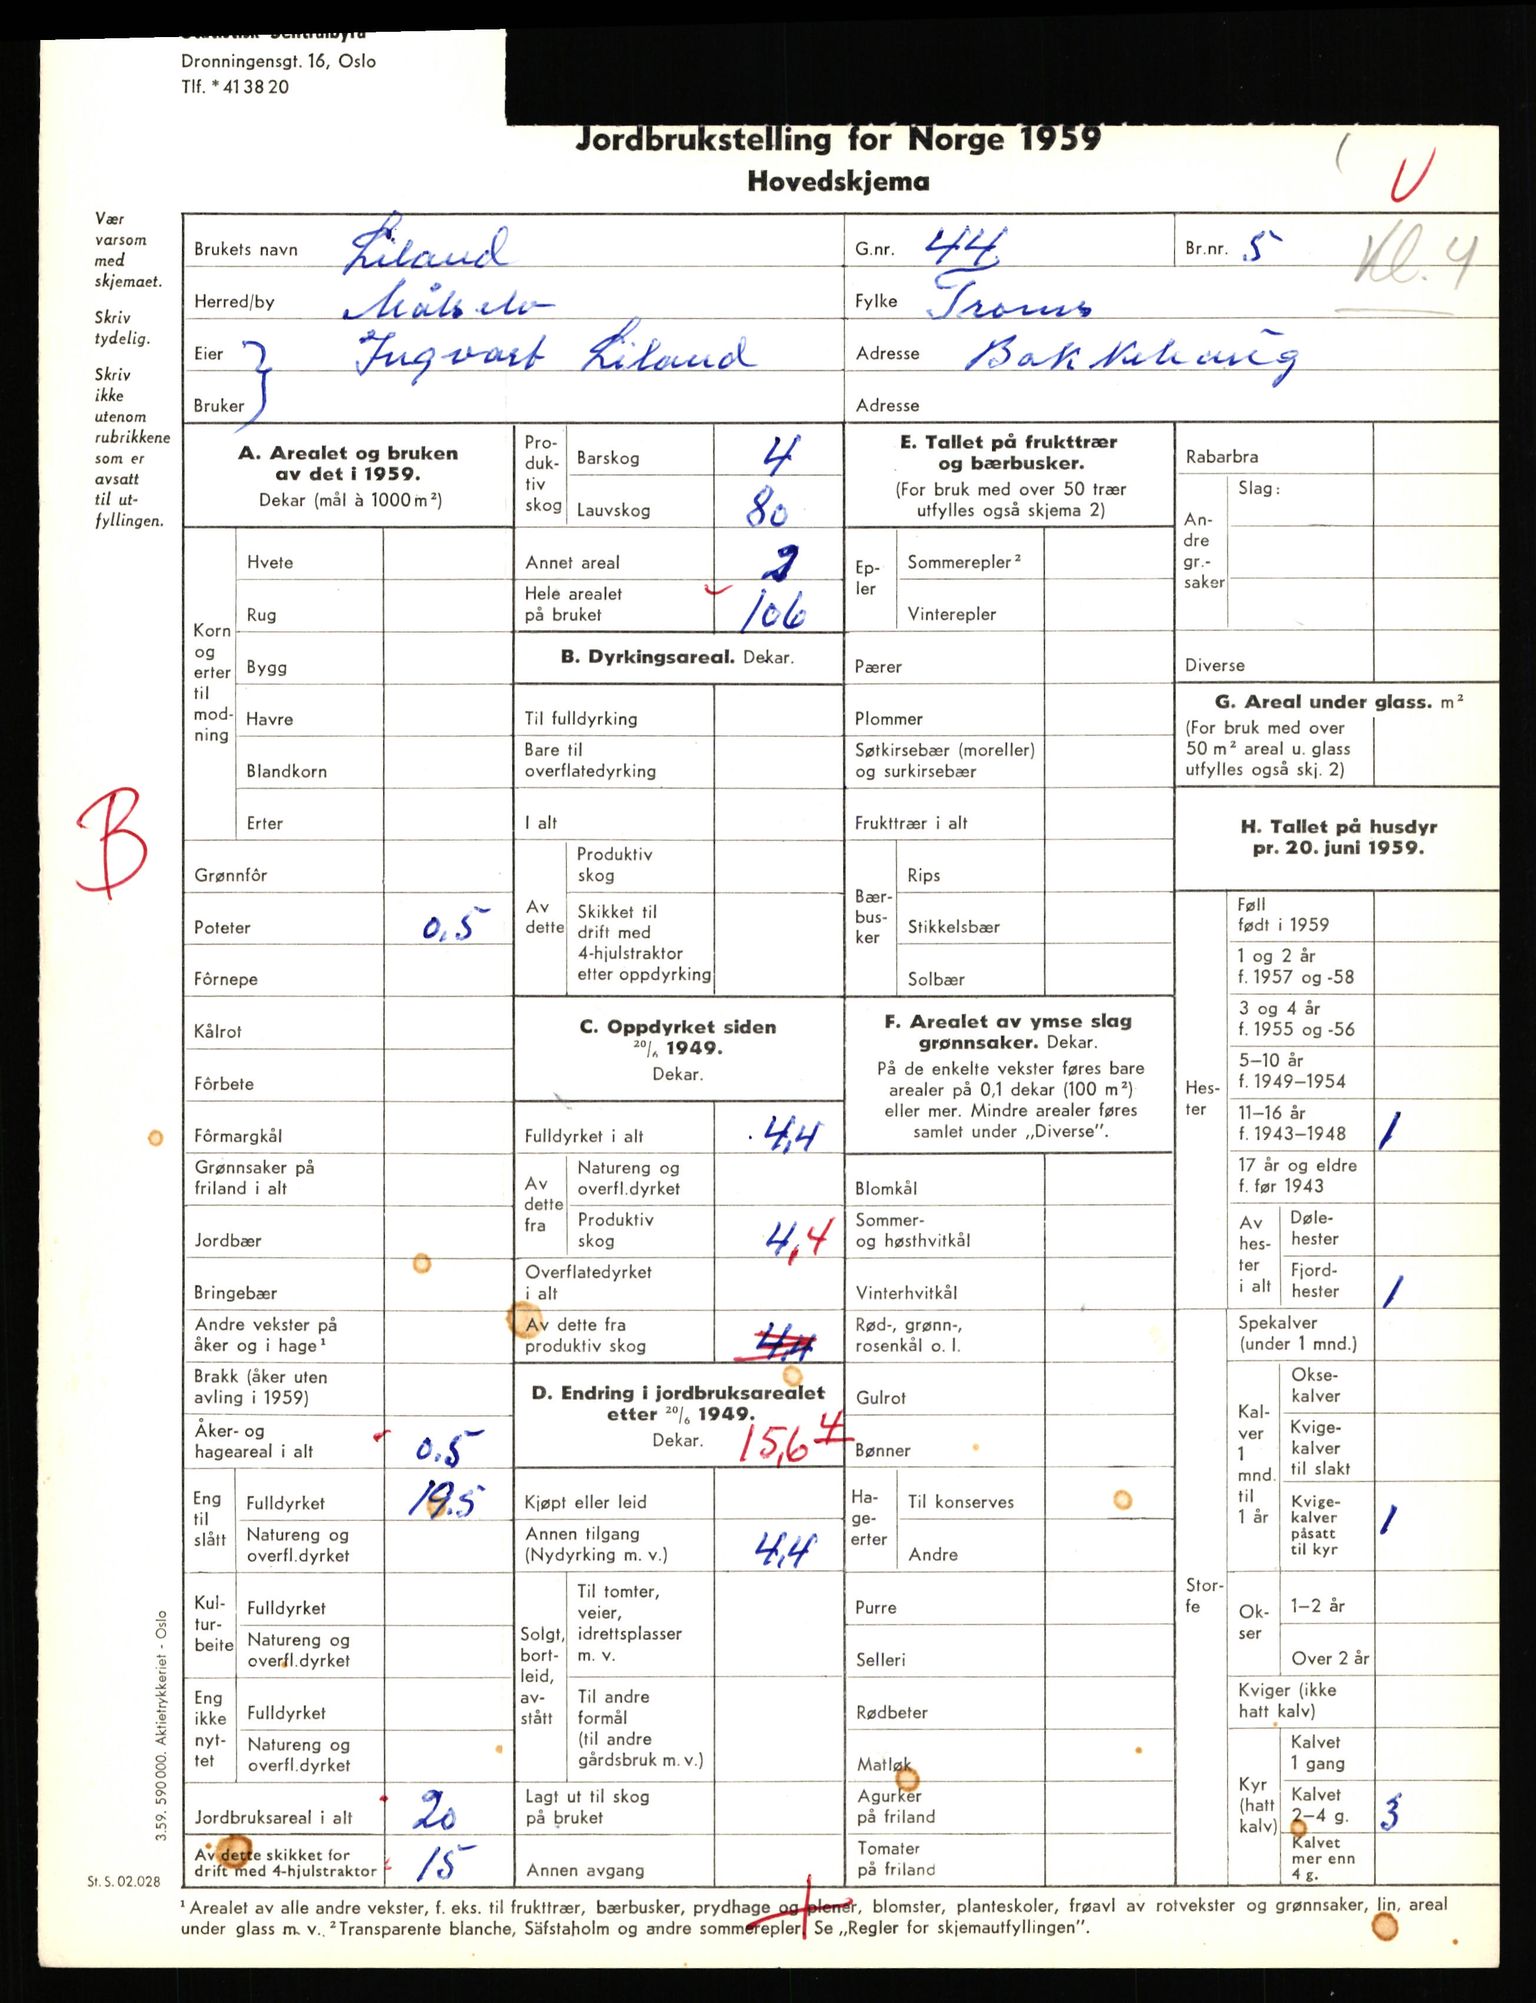 Statistisk Sentralbyrå
Dronningensgt. 16, Oslo
Tlf. * 41 38 20
Jordbrukstelling for Norge 1959
Hovedskjema
U
Vær varsom med skjemaet.
Skriv tydelig.
Skriv ikke utenom rubrikkene som er avsatt til ut-fyllingen.
Brukets navn Liland
G.nr. 44
Br.nr. 5
Kl. 4
Herred/by Målselv
Fylke Troms
Eier Ingvart Liland
Adresse Bakkehaug
Bruker
Adresse
B
A. Arealet og bruken
av det i 1959.
Dekar (mål à 1000 m²)
Korn og erter til mod-ning
Hvete
Rug
Bygg
Havre
Blandkorn
Erter
Grønnfôr
Poteter 0,5
Fôrnepe
Kålrot
Fôrbete
Fôrmargkål
Grønnsaker på
friland i alt
Jordbær
Bringebær
Andre vekster på
åker og i hage¹
Brakk (åker uten
avling i 1959)
Åker- og
hageareal i alt 0.5
Eng til slått
Fulldyrket 19.5
Natureng og
overfl.dyrket
Kul-tur-beite
Fulldyrket
Natureng og
overfl.dyrket
Eng ikke nyt-tet
Fulldyrket
Natureng og
overfl.dyrket
Jordbruksareal i alt 20
Av dette skikket for
drift med 4-hjulstraktor 15
Pro-duk-tiv skog
Barskog 4
Lauvskog 80
Annet areal 2
Hele arealet
på bruket 106
B. Dyrkingsareal. Dekar.
Til fulldyrking
Bare til
overflatedyrking
I alt
Av dette
Produktiv
skog
Skikket til
drift med
4-hjulstraktor
etter oppdyrking
C. Oppdyrket siden
20/6 1949.
Dekar.
Fulldyrket i alt 4,4
Av dette fra
Natureng og
overfl.dyrket
Produktiv
skog 4,4
Overflatedyrket
i alt
Av dette fra
produktiv skog 4,4
D. Endring i jordbruksarealet
etter 20/6 1949.
Dekar. 15,6 4
Kjøpt eller leid
Annen tilgang
(Nydyrking m. v.) 4,4
Solgt, bort-leid, av-stått
Til tomter,
veier,
idrettsplasser
m. v.
Til andre
formål
(til andre
gårdsbruk m. v.)
Lagt ut til skog
på bruket
Annen avgang
E. Tallet på frukttrær
og bærbusker.
(For bruk med over 50 trær
utfylles også skjema 2)
Ep-ler
Sommerepler²
Vinterepler
Pærer
Plommer
Søtkirsebær (moreller)
og surkirsebær
Frukttrær i alt
Bær-bus-ker
Rips
Stikkelsbær
Solbær
F. Arealet av ymse slag
grønnsaker. Dekar.
På de enkelte vekster føres bare
arealer på 0,1 dekar (100 m²)
eller mer. Mindre arealer føres
samlet under „Diverse”.
Blomkål
Sommer-
og høsthvitkål
Vinterhvitkål
Rød-, grønn-,
rosenkål o. l.
Gulrot
Bønner
Ha-ge-erter
Til konserves
Andre
Purre
Selleri
Rødbeter
Matløk
Agurker
på friland
Tomater
på friland
Rabarbra
An-dre gr.-saker
Slag:
Diverse
G. Areal under glass. m²
(For bruk med over
50 m² areal u. glass
utfylles også skj. 2)
H. Tallet på husdyr
pr. 20. juni 1959.
Hes-ter
Føll
født i 1959
1 og 2 år
f. 1957 og -58
3 og 4 år
f. 1955 og -56
5–10 år
f. 1949–1954
11–16 år
f. 1943–1948 1
17 år og eldre
f. før 1943
Av hes-ter i alt
Døle-
hester
Fjord-
hester 1
Stor-fe
Spekalver
(under 1 mnd.)
Kal-ver 1 mnd. til 1 år
Okse-
kalver
Kvige-
kalver
til slakt
Kvige-
kalver
påsatt
til kyr 1
Ok-ser
1–2 år
Over 2 år
Kviger (ikke
hatt kalv)
Kyr (hatt kalv)
Kalvet
1 gang
Kalvet
2–4 g. 3
Kalvet
mer enn
4 g.
3.59. 590 000. Aktietrykkeriet - Oslo
St. S. 02.028
¹ Arealet av alle andre vekster, f. eks. til frukttrær, bærbusker, prydhage og plener, blomster, planteskoler, frøavl av rotvekster og grønnsaker, lin, areal
under glass m. v. ² Transparente blanche, Säfstaholm og andre sommerepler. Se „Regler for skjemautfyllingen”.